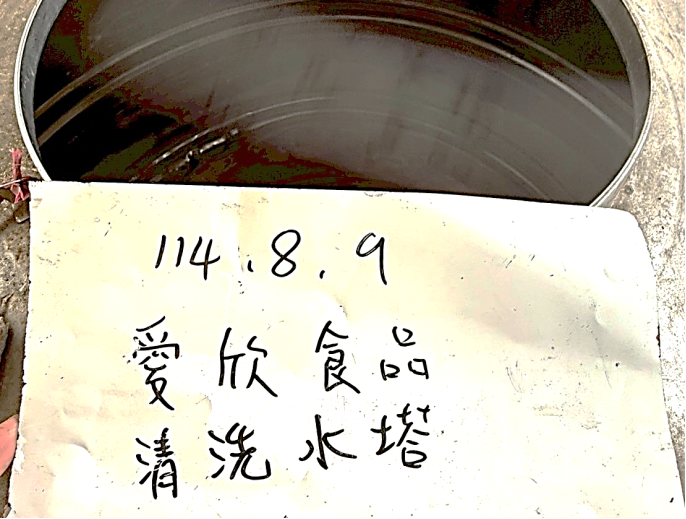 114.8.9
愛欣食品
清洗水塔